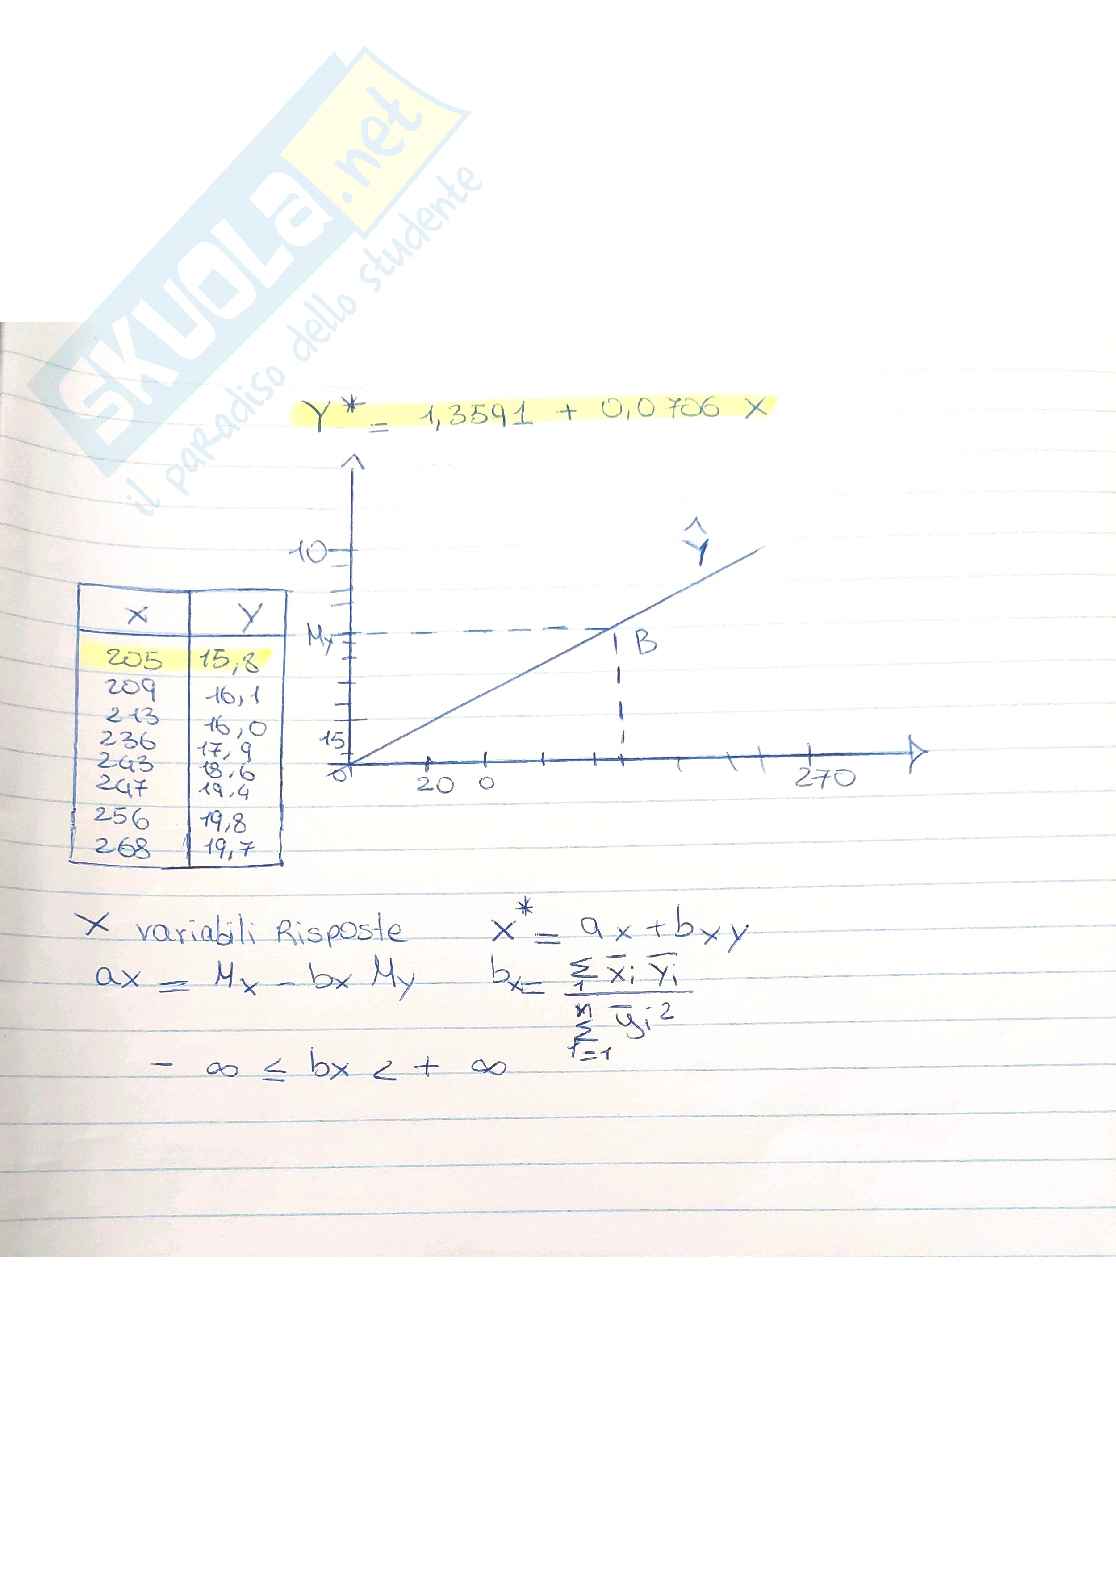 SKUOLA.net
il paradiso dello studente
Y* = 1,3591 + 0,0706 X
10
My
15
0
20 0
270
Ŷ
B
X Y
205 15,8
209 16,1
213 16,0
236 17,9
243 18,6
247 19.4
256 19,8
268 19,7
X variabili Risposte X* = ax + bxy
ax = Mx - bx My bx = Σ1 x̄i ȳi / Σ i=1 n ȳi²
- ∞ ≤ bx < + ∞